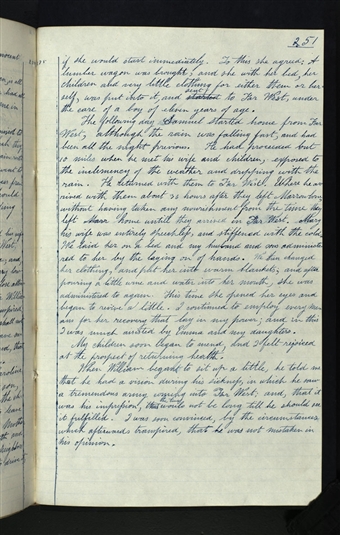 251
if she would start immediately. To this she agreed; A
lumber wagon was brought; and she with her bed, her
children and very little clothing for either them or her
self, was put into it, and sent to Far West, under
the care of a boy of eleven years of age.
The following day Samuel started home from Far
West, although the rain was falling fast, and had
been all the night previous. He had proceeded but
10 miles when he met his wife and children, exposed to
the inclemency of the weather and dripping with the
rain. He returned with them to Far West. Where he ar
rived with them about hours after they left Marrowbone
without having taken any nourishment from the time they
left home untill they arrived in Far West. Mary
his wife was entirely speechless, and stiffened with the cold
We laid her on a bed and my husband and son administe
red to her by the laying on of hands. We then changed
her clothing, and put her into warm blankets, and after
pouring a little wine and water into her mouth, she was
administered to again. This time she opened her eyes and
began to revive a little. I continued to employ every me
ans for her recovery that lay in my power; and in this
I was much assisted by Emma and my daughters.
My children soon began to mend, and I felt rejoiced
at the prospect of returning health.
When William began to sit up a little, he told me
that he had a vision during his sickness, in which he saw
a tremendous army coming into Far West; and, that it
was his impression, the time would not be long till he should see
it fulfilled. I was soon convinced, by the circumstances
which afterwards transpired, that he was not mistaken in
his opinion.